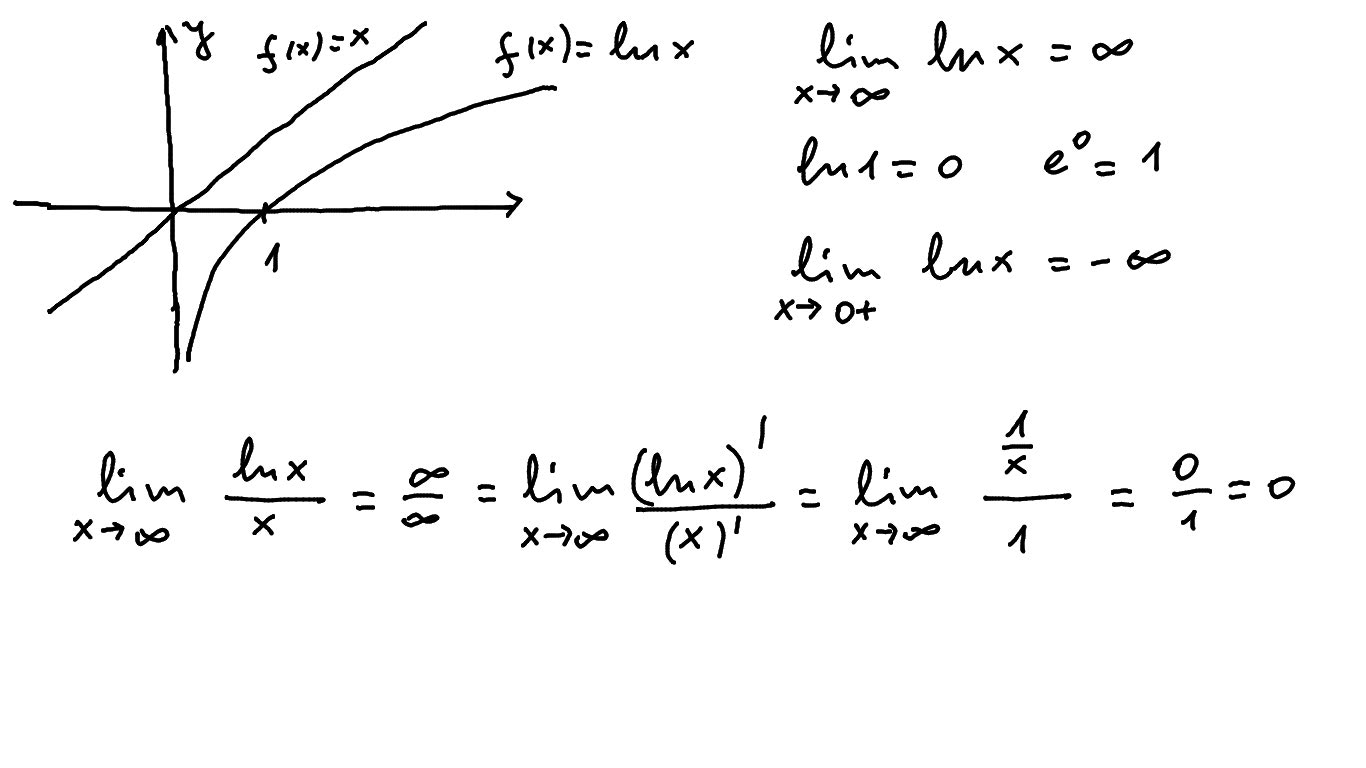 y f(x)=x f(x)=ln x
lim x→∞ ln x = ∞
ln 1 = 0 e⁰ = 1
lim x→0+ ln x = -∞
1
lim x→∞ ln x / x = ∞/∞ = lim x→∞ (ln x)' / (x)' = lim x→∞ (1/x) / 1 = 0/1 = 0